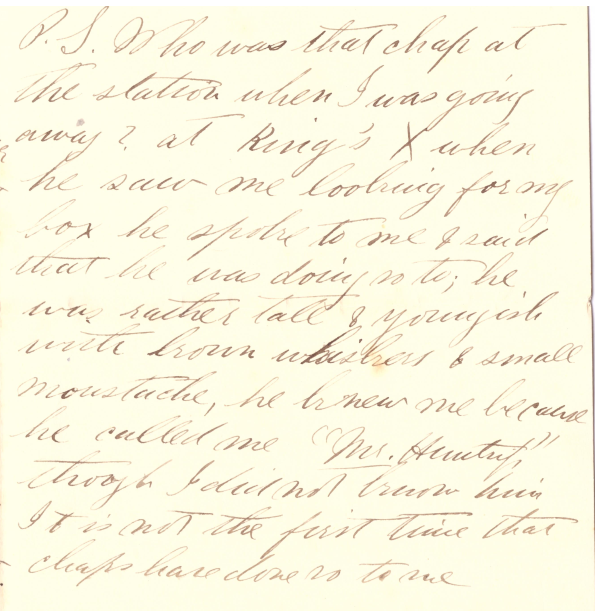 P.S. Who was that chap at
the station when I was going
away? at King's X when
he saw me looking for my
box he spoke to me & said
that he was doing so to; he
was rather tall & youngish
with brown whiskers & small
moustache, he knew me because
he called me "Mr.
though I did not know him
It is not the first time that
chaps have done so to me